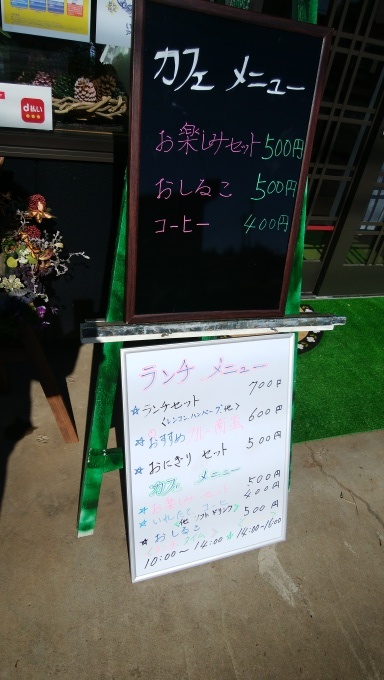 d払い
カフェ メニュー
お楽しみセット 500円
おしるこ 500円
コーヒー 400円
ランチ メニュー
☆ランチセット 700円
<レンコンハンバーグ他>
☆おすすめ 600円
☆おにぎり セット 500円
カフェ メニュー
☆お楽しみセット 500円
☆いれたてコーヒー 400円
<他 ソフトドリンク>
☆おしるこ 500円
10:00~14:00 ☆ 14:00-16:00